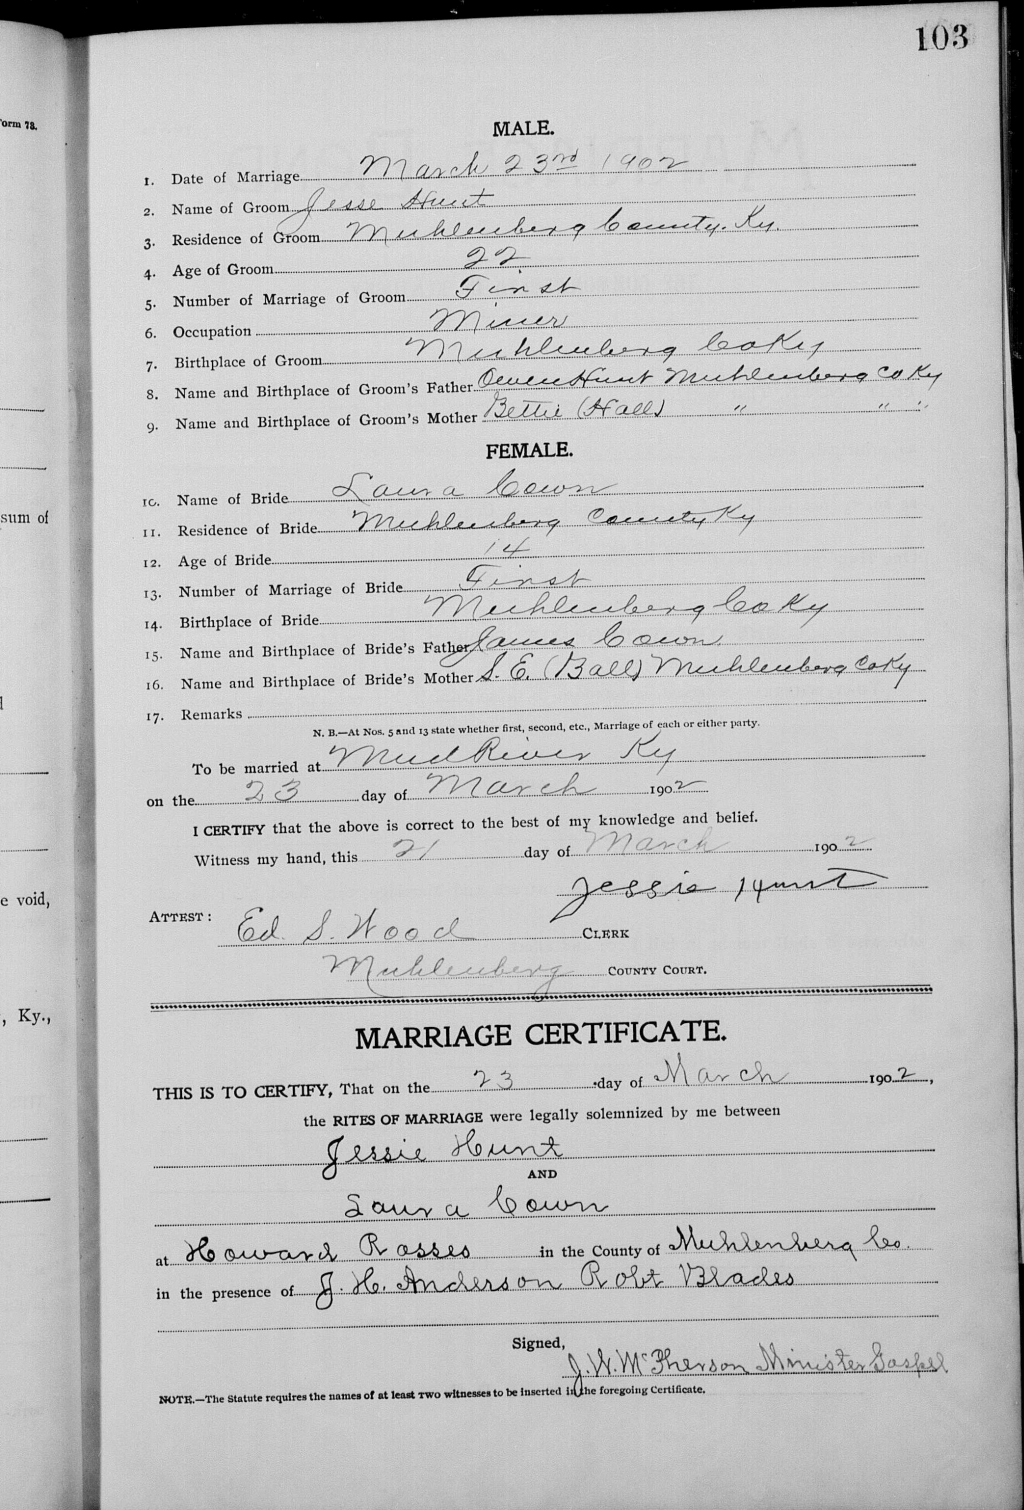 103
orm 78.
MALE.
1. Date of Marriage March 23rd 1902
2. Name of Groom Jesse Hunt
3. Residence of Groom Muhlenberg County. Ky.
4. Age of Groom 22
5. Number of Marriage of Groom First
6. Occupation Miner
7. Birthplace of Groom Muhlenberg Co Ky
8. Name and Birthplace of Groom's Father Owen Hunt Muhlenberg Co Ky
9. Name and Birthplace of Groom's Mother Bettie (Hall) " " "
FEMALE.
10. Name of Bride Laura Cown
sum of
11. Residence of Bride Muhlenberg County Ky
12. Age of Bride 14
13. Number of Marriage of Bride First
14. Birthplace of Bride Muhlenberg Co Ky
15. Name and Birthplace of Bride's Father James Cown
16. Name and Birthplace of Bride's Mother S. E. (Ball) Muhlenberg Co Ky
17. Remarks
N. B.—At Nos. 5 and 13 state whether first, second, etc., Marriage of each or either party.
To be married at Mud River Ky
on the 23 day of March 1902
I CERTIFY that the above is correct to the best of my knowledge and belief.
Witness my hand, this 21 day of March 1902
Jessie Hunt
e void,
ATTEST: Ed. S. Wood CLERK
Muhlenberg COUNTY COURT.
, Ky.,
MARRIAGE CERTIFICATE.
THIS IS TO CERTIFY, That on the 23 day of March 1902,
the RITES OF MARRIAGE were legally solemnized by me between
Jessie Hunt
AND
Laura Cown
at Howard Rosses in the County of Muhlenberg Co.
in the presence of J. H. Anderson Robt Blades
Signed,
J. W. McPherson Minister Gospel
NOTE.—The Statute requires the names of at least TWO witnesses to be inserted in the foregoing Certificate.